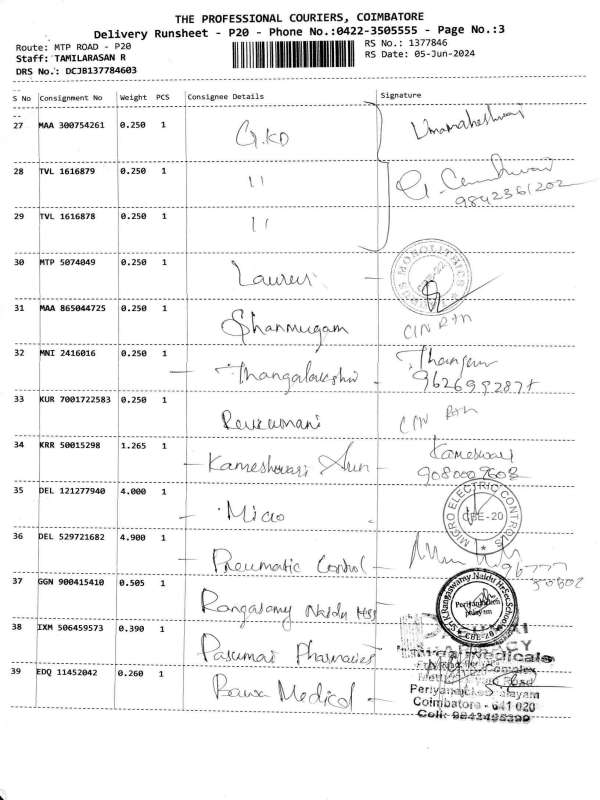 THE PROFESSIONAL COURIERS, COIMBATORE
Delivery Runsheet - P20 - Phone No.:0422-3505555 - Page No.:3
Route: MTP ROAD - P20
RS No.: 1377846
Staff: TAMILARASAN R
RS Date: 05-Jun-2024
DRS No.: DCJB137784603
S No Consignment No Weight PCS Consignee Details Signature
27 MAA 300754261 0.250 1 G.KD Umamaheshwari
28 TVL 1616879 0.250 1 11
9842361202
29 TVL 1616878 0.250 1 11
30 MTP 5074049 0.250 1
31 MAA 865044725 0.250 1 Shanmugam
32 MNI 2416016 0.250 1 Thangalakshmi
33 KUR 7001722583 0.250 1
34 KRR 50015298 1.265 1 Kameshwari Arun Kameswari
35 DEL 121277940 4.000 1 Micro
MICRO ELECTRIC CONTROLS
CBE-20
36 DEL 529721682 4.900 1 Pneumatic Control
37 GGN 900415410 0.505 1 Rangasamy Naidu HSS
Periyanaicken
palayam
CBE-20
38 IXM 506459573 0.390 1 Pasumai Pharmacies
39 EDQ 11452042 0.260 1 Medical
Periyanaicken Palayam
Coimbatore - 641 020